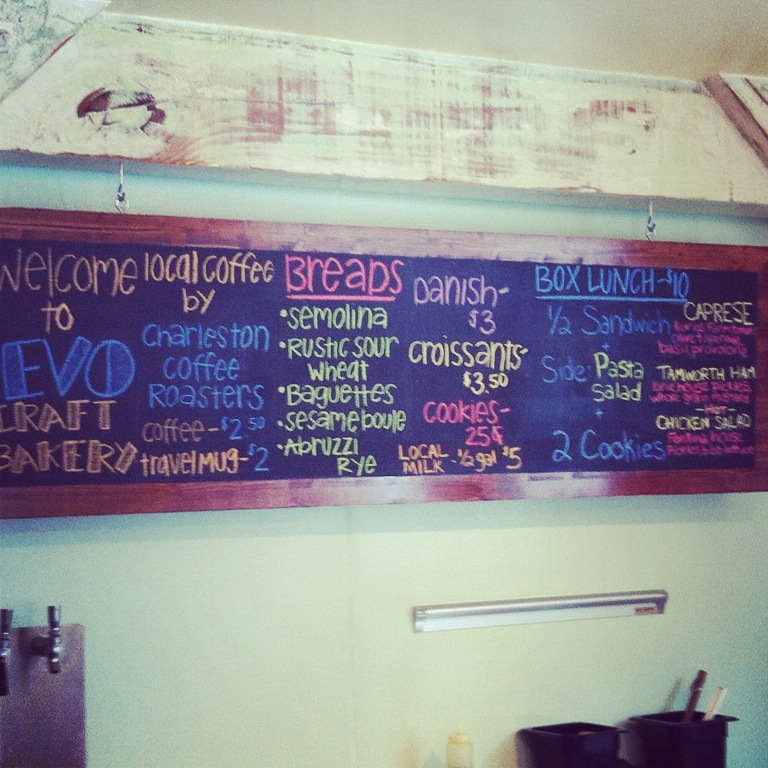 Welcome
to
EVO
CRAFT
BAKERY
local coffee
by
Charleston
Coffee
Roasters
coffee - $2.50
travel mug - $2
Breads
•semolina
•Rustic sour
wheat
•Baguettes
•sesame boule
•Abruzzi
Rye
Danish-
$3
croissants-
$3.50
cookies-
25¢
LOCAL
MILK - ½ gal $5
BOX LUNCH - $10
½ Sandwich
+
Side: Pasta
Salad
+
2 Cookies
CAPRESE
TAMWORTH HAM
-Hot-
CHICKEN SALAD